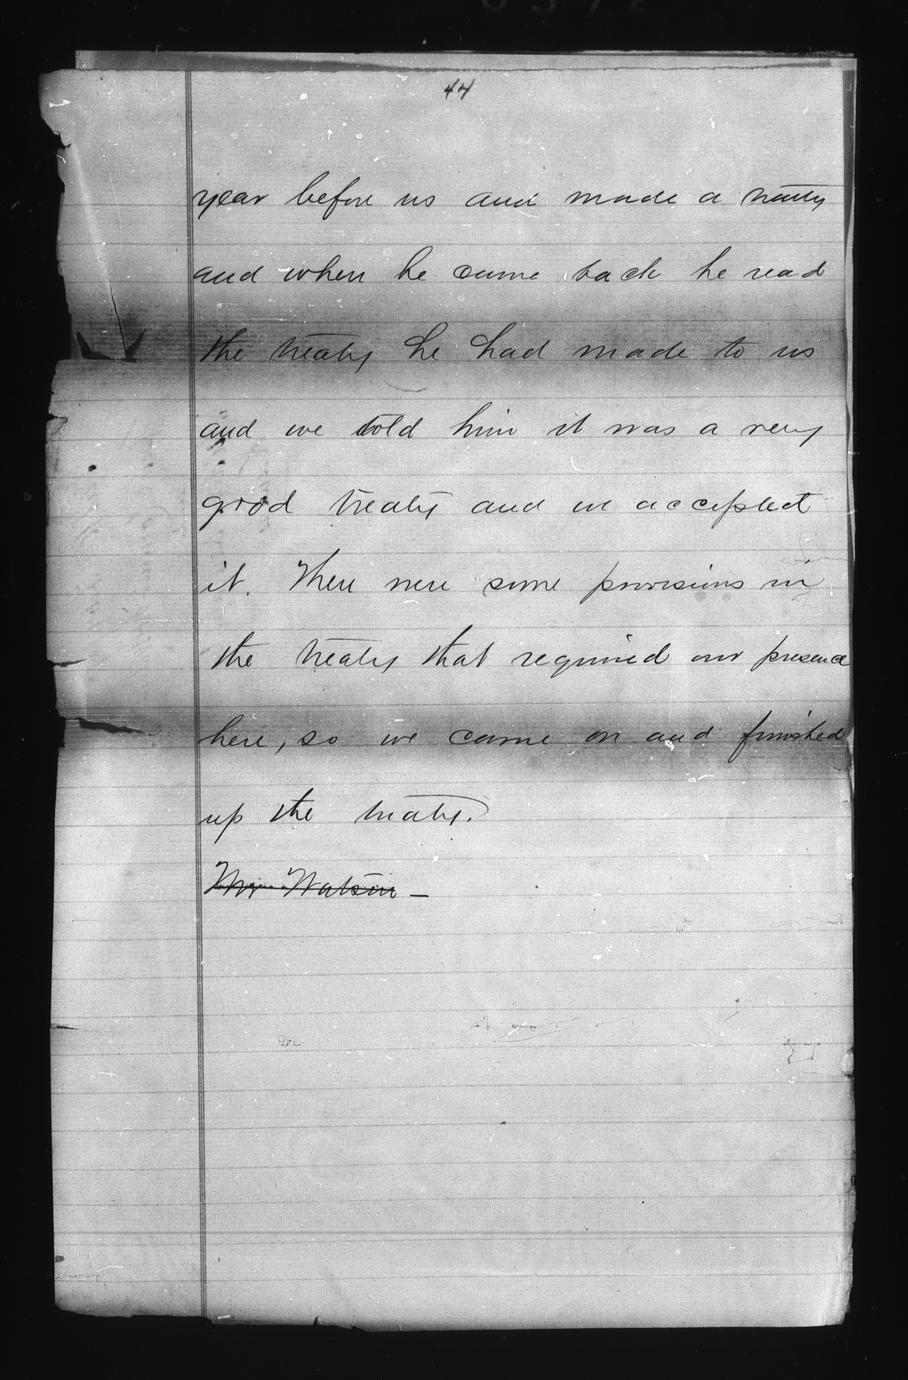 44
year before us and made a treaty
and when he came back he read
the treaty he had made to us
and we told him it was a very
good treaty and we accepted
it. There were some provisions in
the treaty that required our presence
here, so we came on and finished
up the treaty.
Mr Watson —